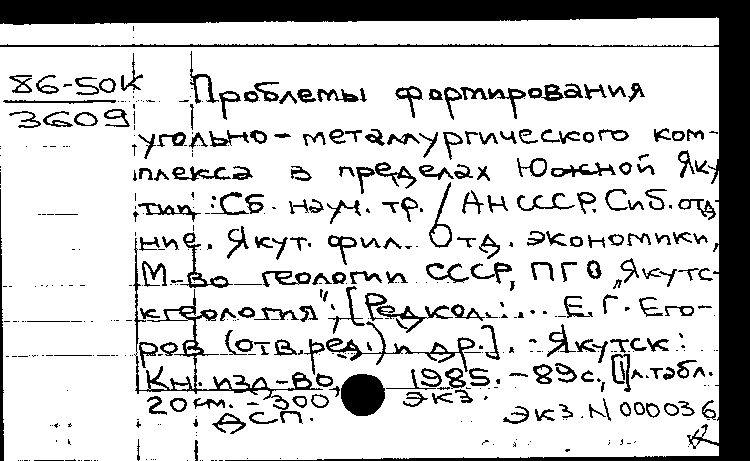 86-50К
3609
Проблемы формирования
угольно-металлургического ком-
плекса в пределах Южной Яку-
тии : Сб. науч. тр. / АН СССР. Сиб. отд-
ние. Якут. фил. Отд. экономики,
М-во геологии СССР, ПГО „Якутс-
кгеология"; [Редкол.: ... Е. Г. Его-
ров (отв. ред.) и др.]. - Якутск :
Кн. изд-во, 1985. - 89 с., [1] л. табл.
20 см. - 300 экз.
ДСП.
экз. N 000036